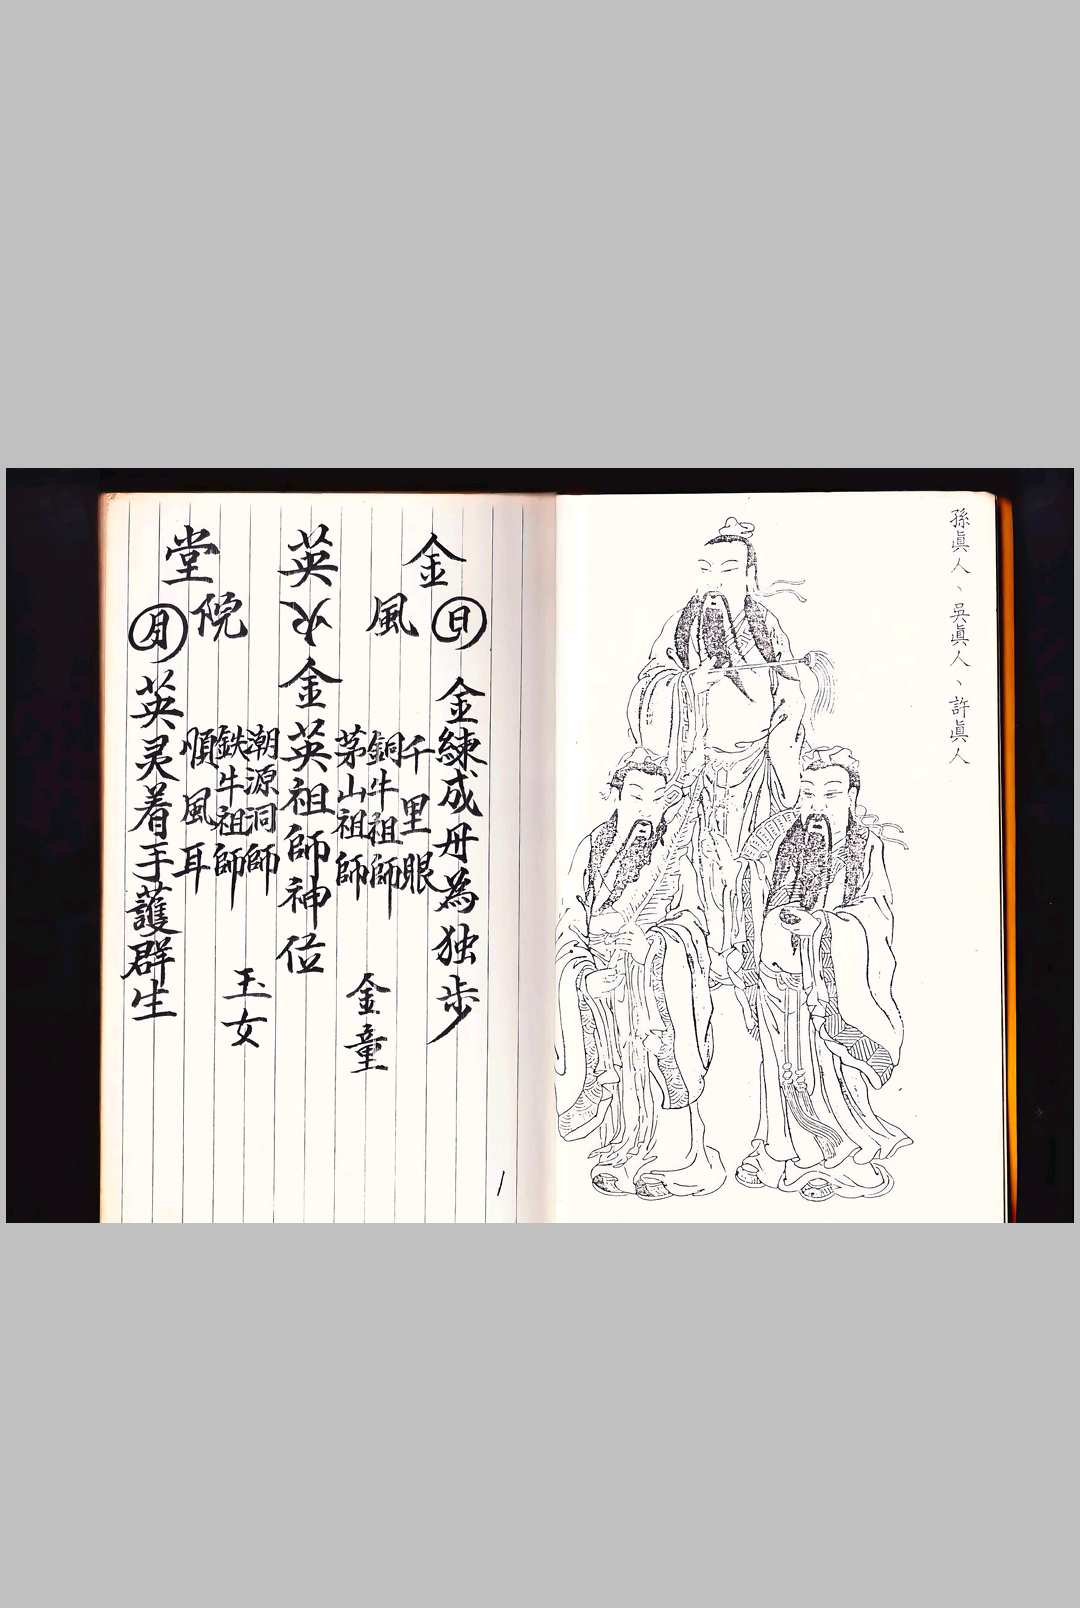 孫眞人、吳眞人、許眞人
金英堂
風火院
日 金練成丹為独步
千里眼
銅牛祖師
茅山祖師
金童
金英祖師神位
潮源洞師
鉄牛祖師
玉女
順風耳
月 英灵着手護群生
1